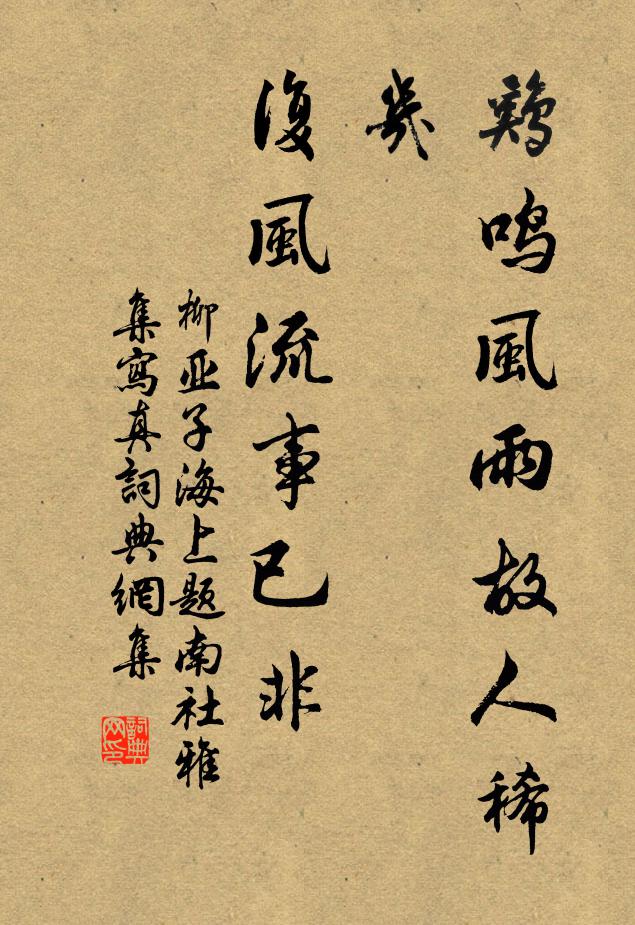 鷄鳴風雨故人稀
幾
復風流事已非
柳亚子海上题南社雅
集寫真詞典網集
詞典
网印